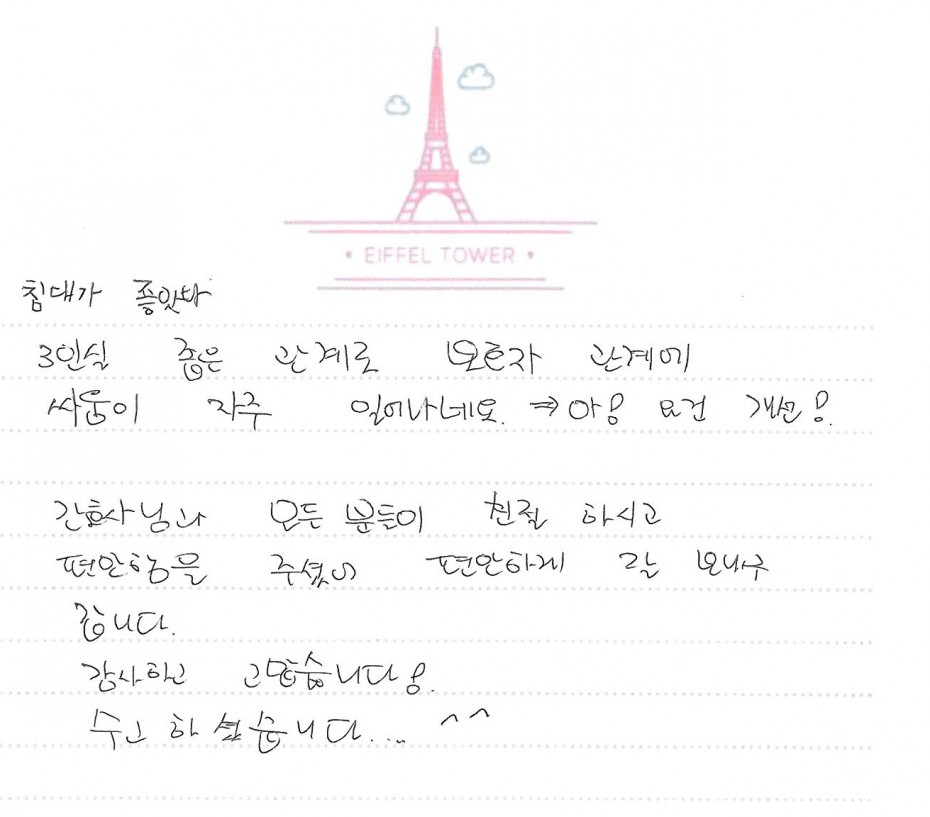 • EIFFEL TOWER •
침대가 좋았다
3인실 좁은 관계로 보호자 관계에
싸움이 자주 일어나네요. ⇒ 요건 개선!
간호사님과 모든 분들이 친절 하시고
편안함을 주셨어 편안하게 잘 보내구
갑니다.
감사하고 고맙습니다!
수고 하셨습니다.... ^^